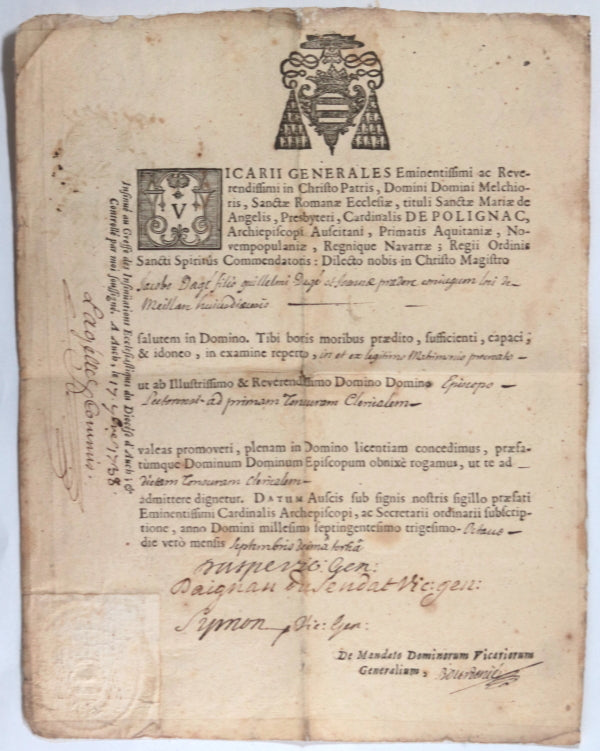 VICARII GENERALES Eminentissimi ac Reve-
rendissimi in Christo Patris, Domini Domini Melchio-
ris, Sanctæ Romanæ Ecclesiæ, tituli Sanctæ Mariæ de
Angelis, Presbyteri, Cardinalis DE POLIGNAC,
Archiepiscopi Auscitani, Primatis Aquitaniæ, No-
vempopulaniæ, Regnique Navarræ; Regii Ordinis
Sancti Spiritûs Commendatoris: Dilecto nobis in Christo Magistro
Jacobo Dagé filio guillelmi Dagé et conjugum loci de
Meillan
salutem in Domino. Tibi bonis moribus prædito, sufficienti, capaci,
& idoneo, in examine reperto, in et ex legitimo Matrimonio procreato
ut ab Illustrissimo & Reverendissimo Domino Domino Episcopo
Lectorensi ad primam Tonsuram Clericalem
valeas promoveri, plenam in Domino licentiam concedimus, præfa-
tumque Dominum Dominum Episcopum obnixè rogamus, ut te ad
Dictam Tonsuram Clericalem
admittere dignetur. DATUM Auscis sub signis nostris sigillo præfati
Eminentissimi Cardinalis Archepiscopi, ac Secretarii ordinarii subscrip-
tione, anno Domini millesimi septingentesimo trigesimo Octavo
die verò mensis Septembris decima tertia
Vic. Gen:
Daignan du Sendat Vic: gen:
Symon Vic: Gen:
De Mandato Dominorum Vicariorum
Generalium,
Insinué au Greffe des Insinuations Ecclesiastiques du Diocèse d'Auch, &
Contrôllé par moi soussigné. A Auch, le 17 1738
Commis.